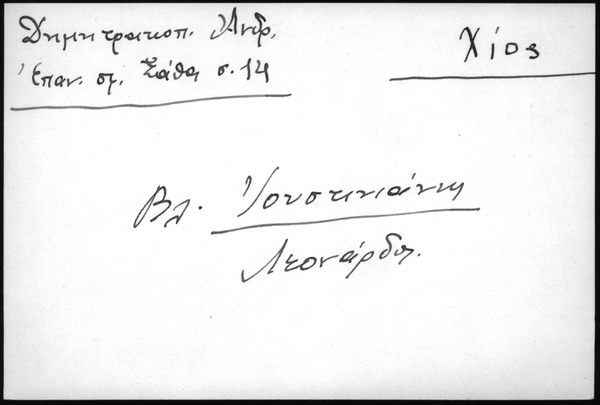 Δημητρακοπ. Ἀνδρ.
Ἐπαν. σζ. Σάθα σ. 14
Χίος
Βλ. Ἰουστινιάνη
Λεονάρδο.